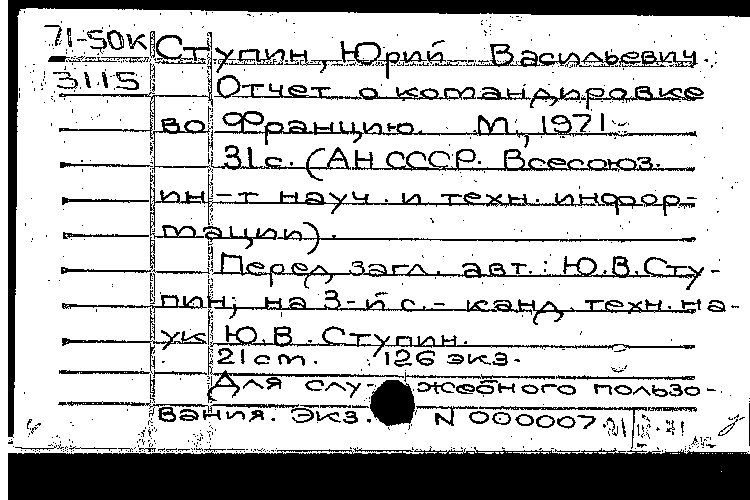 71-50К Ступин, Юрий Васильевич.
3115 Отчет о командировке
во Францию. М., 1971-
31с. (АН СССР. Всесоюз.
ин-т науч. и техн. инфор-
мации).
Перед загл. авт.: Ю.В.Сту-
пин; на 3-й с.- канд. техн. на-
ук Ю.В. Ступин.
21см. 126 экз.
Для слу- жебного пользо-
вания. Экз. N 000007.